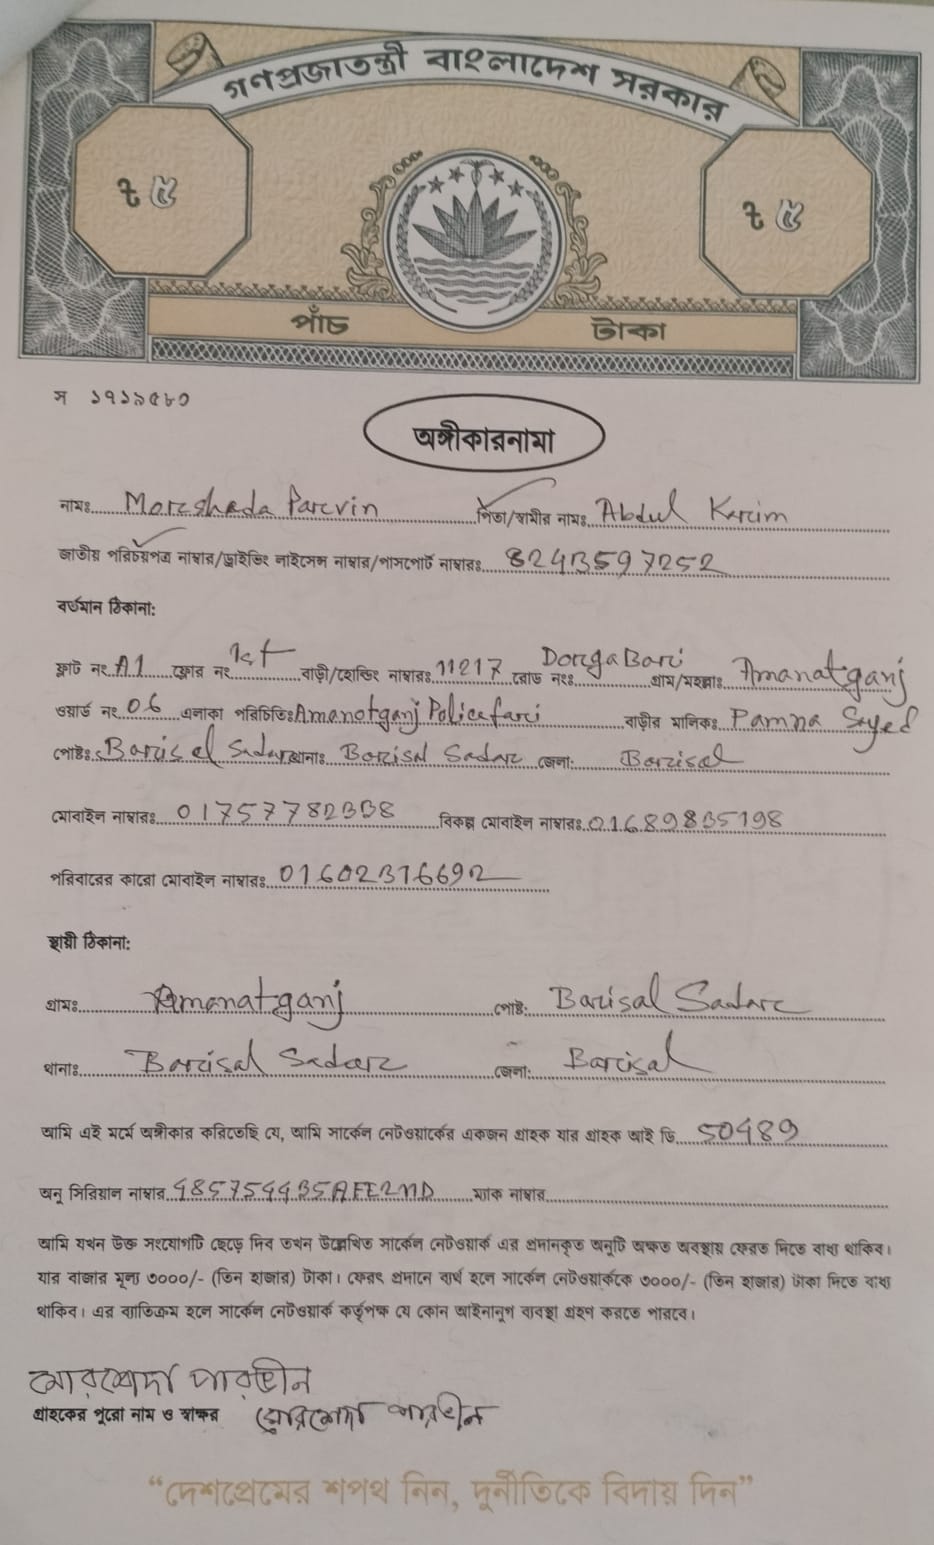 গণপ্রজাতন্ত্রী বাংলাদেশ সরকার
৳ ৫ ৳ ৫
পাঁচ টাকা
স ১৭১৯৫৮০
অঙ্গীকারনামা
নামঃ Morsheda Parvin পিতা/স্বামীর নামঃ Abdul Karim
জাতীয় পরিচয়পত্র নাম্বার/ড্রাইভিং লাইসেন্স নাম্বার/পাসপোর্ট নাম্বারঃ 8243597252
বর্তমান ঠিকানা:
ফ্লাট নং A1 ফ্লোর নং 1st বাড়ী/হোল্ডিং নাম্বারঃ 11217 রোড নংঃ Dorga Bari গ্রাম/মহল্লাঃ Amanatganj
ওয়ার্ড নং 06 এলাকা পরিচিতিঃ Amanotganj Police fari বাড়ীর মালিকঃ Pamna Sayed
পোষ্টঃ Barisal Sadar থানাঃ Barisal Sadar জেলা: Barisal
মোবাইল নাম্বারঃ 01757782338 বিকল্প মোবাইল নাম্বারঃ 01689835198
পরিবারের কারো মোবাইল নাম্বারঃ 01602376692
স্থায়ী ঠিকানা:
গ্রামঃ Amanatganj পোষ্ট: Barisal Sadar
থানাঃ Barisal Sadar জেলা: Barisal
আমি এই মর্মে অঙ্গীকার করিতেছি যে, আমি সার্কেল নেটওয়ার্কের একজন গ্রাহক যার গ্রাহক আই ডি 50489
অনু সিরিয়াল নাম্বার ম্যাক নাম্বার
আমি যখন উক্ত সংযোগটি ছেড়ে দিব তখন উল্লেখিত সার্কেল নেটওয়ার্ক এর প্রদানকৃত অনুটি অক্ষত অবস্থায় ফেরত দিতে বাধ্য থাকিব।
যার বাজার মূল্য ৩০০০/- (তিন হাজার) টাকা। ফেরৎ প্রদানে ব্যর্থ হলে সার্কেল নেটওয়ার্ককে ৩০০০/- (তিন হাজার) টাকা দিতে বাধ্য
থাকিব। এর ব্যতিক্রম হলে সার্কেল নেটওয়ার্ক কর্তৃপক্ষ যে কোন আইনানুগ ব্যবস্থা গ্রহণ করতে পারবে।
মোরশেদা পারভীন
গ্রাহকের পুরো নাম ও স্বাক্ষর মোরশেদা পারভীন
“দেশপ্রেমের শপথ নিন, দুর্নীতিকে বিদায় দিন”